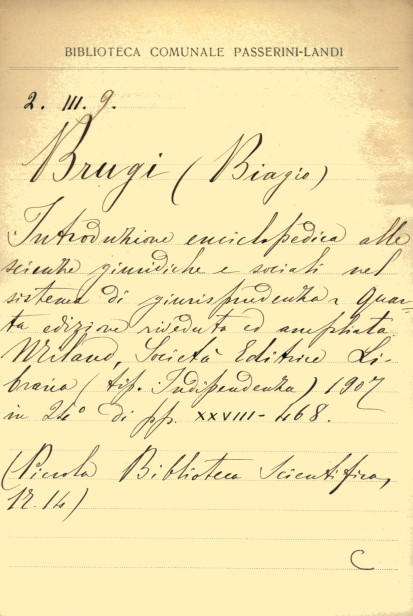 BIBLIOTECA COMUNALE PASSERINI-LANDI
2. III. 9.
Brugi (Biagio)
Introduzione enciclopedica alle
scienze giuridiche e sociali nel
sistema di giurisprudenza. Quar-
ta edizione riveduta ed ampliata.
Milano, Società Editrice Li-
braria (tip. Indipendenza) 1907
in 24° di pp. XXVIII-468.
(Piccola Biblioteca Scientifica,
N. 14)
C